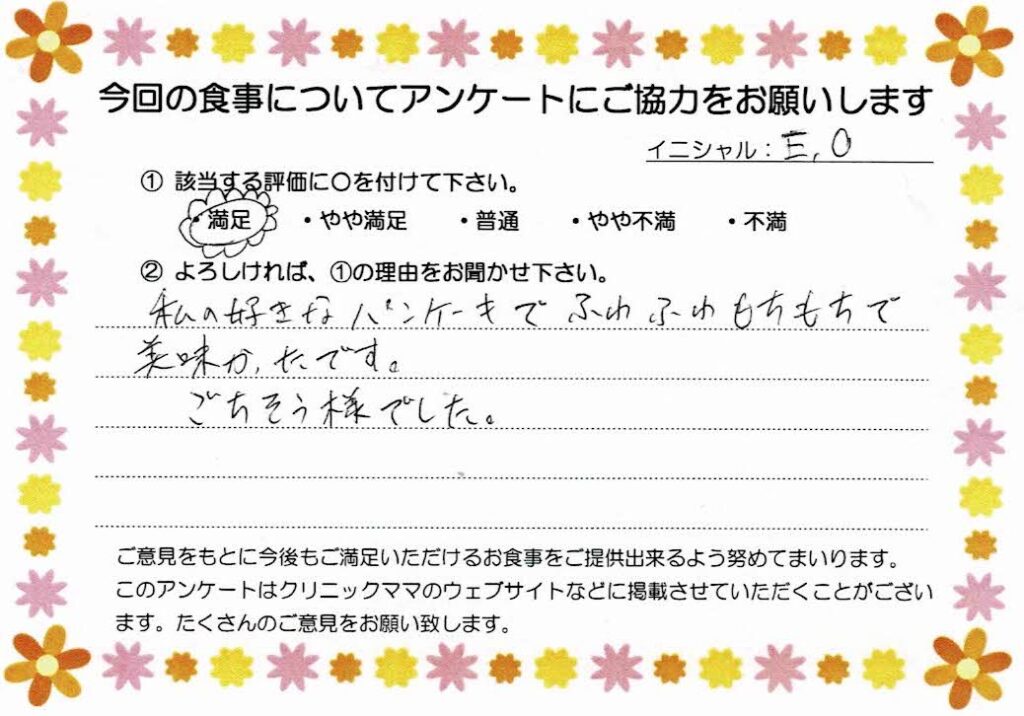 今回の食事についてアンケートにご協力をお願いします
イニシャル：E,O
① 該当する評価に〇を付けて下さい。
・満足 ・やや満足 ・普通 ・やや不満 ・不満
② よろしければ、①の理由をお聞かせ下さい。
私の好きなパンケーキで ふわふわもちもちで
美味かったです。
ごちそう様でした。
ご意見をもとに今後もご満足いただけるお食事をご提供出来るよう努めてまいります。
このアンケートはクリニックママのウェブサイトなどに掲載させていただくことがござい
ます。たくさんのご意見をお願い致します。